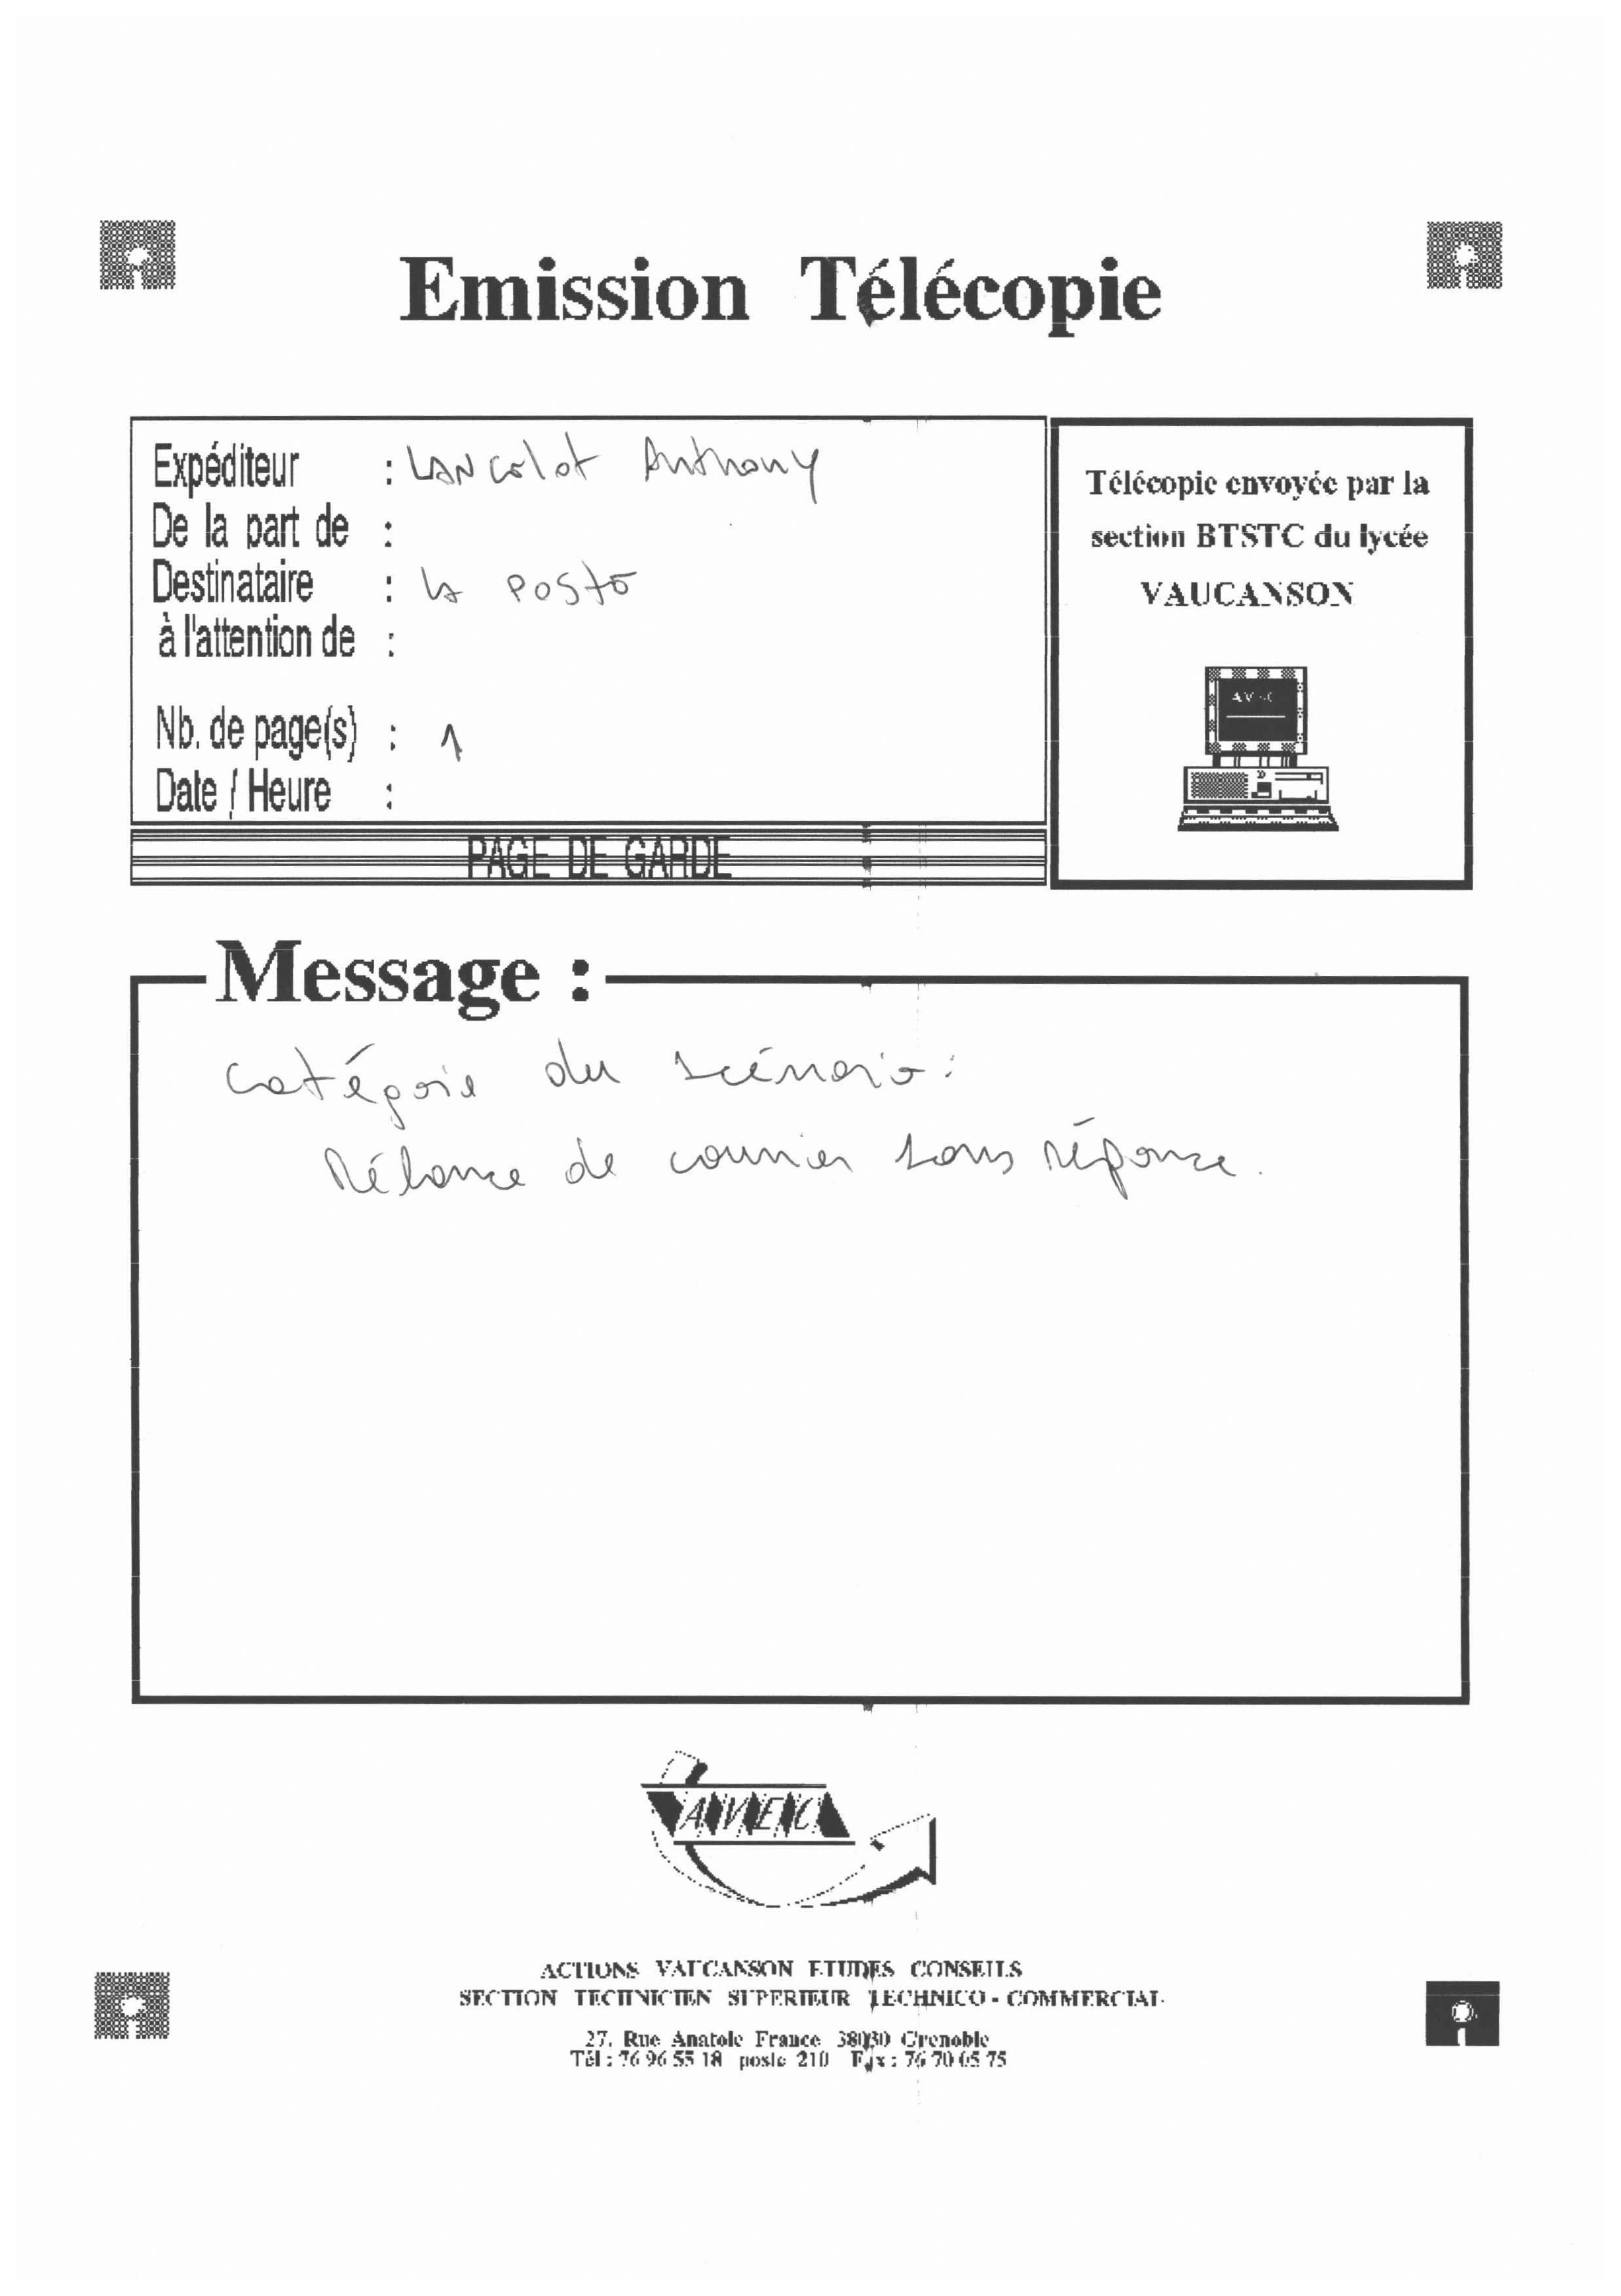 Emission Télécopie
Expéditeur : LANcelot Anthony
De la part de :
Destinataire : la Poste
à l'attention de :
Nb. de page(s) : 1
Date / Heure :
PAGE DE GARDE
Télécopie envoyée par la
section BTSTC du lycée
VAUCANSON
Message :
Catégorie du scénario :
Rélance de courrier sans réponse.
AVEC
ACTIONS VAUCANSON ETUDES CONSEILS
SECTION TECHNICIEN SUPERIEUR TECHNICO - COMMERCIAL
27, Rue Anatole France 38030 Grenoble
Tél : 76 96 55 18 poste 210 Fax : 76 70 05 75